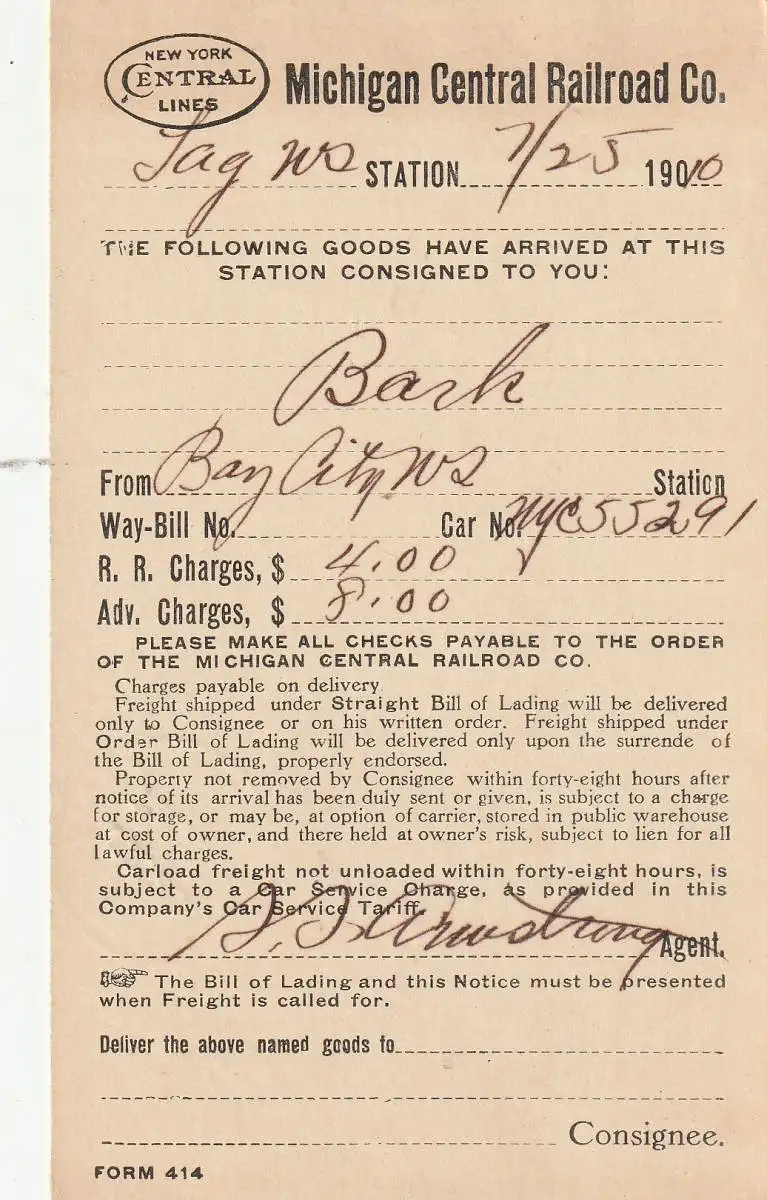 NEW YORK
CENTRAL
LINES
Michigan Central Railroad Co.
Sag WS STATION 7/25 19010
THE FOLLOWING GOODS HAVE ARRIVED AT THIS
STATION CONSIGNED TO YOU:
Bark
From Bay City WS Station
Way-Bill No. Car No. NYC 55291
R. R. Charges, $ 4.00
Adv. Charges, $ 8.00
PLEASE MAKE ALL CHECKS PAYABLE TO THE ORDER
OF THE MICHIGAN CENTRAL RAILROAD CO.
Charges payable on delivery.
Freight shipped under Straight Bill of Lading will be delivered
only to Consignee or on his written order. Freight shipped under
Order Bill of Lading will be delivered only upon the surrende of
the Bill of Lading, properly endorsed.
Property not removed by Consignee within forty-eight hours after
notice of its arrival has been duly sent or given, is subject to a charge
for storage, or may be, at option of carrier, stored in public warehouse
at cost of owner, and there held at owner's risk, subject to lien for all
lawful charges.
Carload freight not unloaded within forty-eight hours, is
subject to a Car Service Charge, as provided in this
Company's Car Service Tariff.
Armstrong Agent.
The Bill of Lading and this Notice must be presented
when Freight is called for.
Deliver the above named goods to
Consignee.
FORM 414